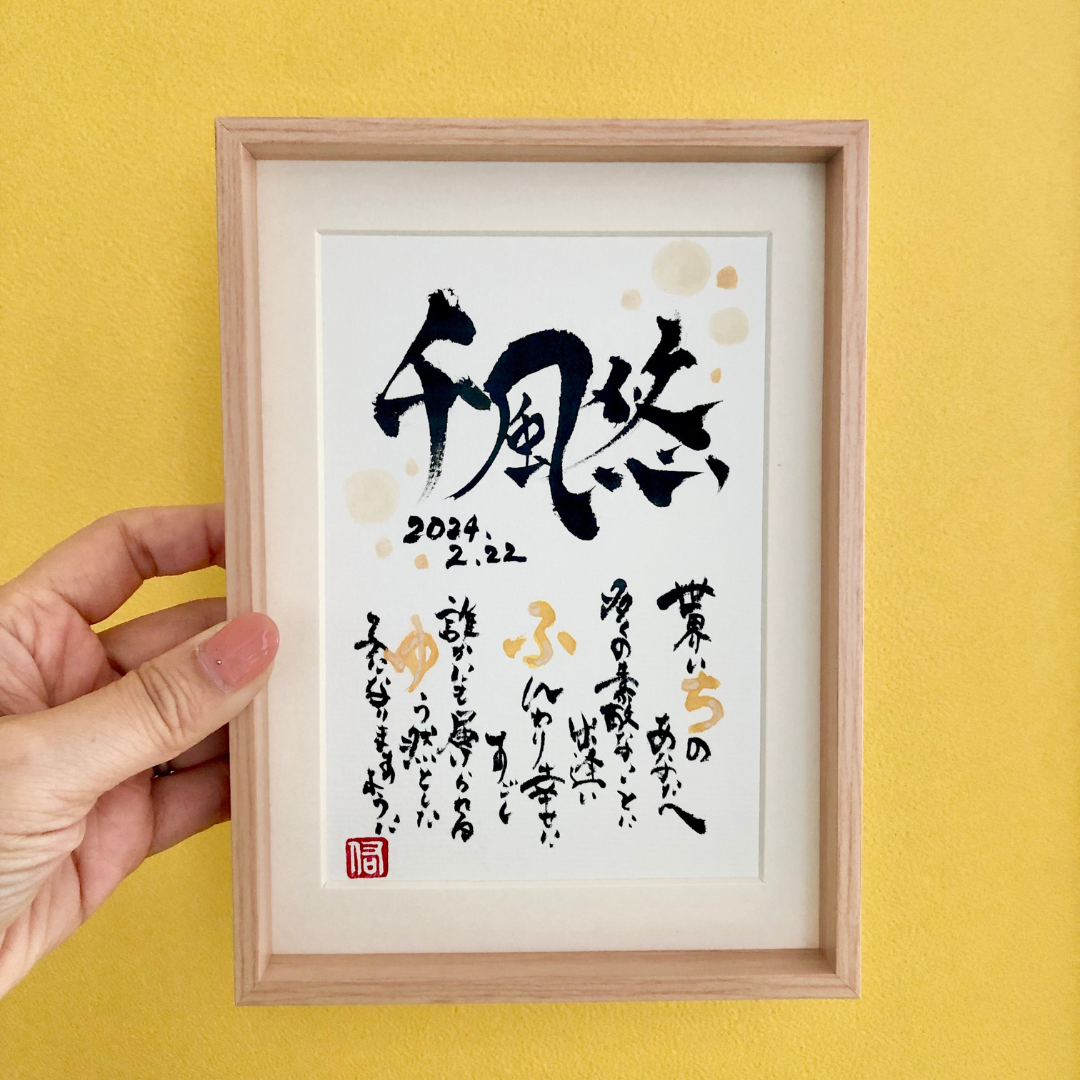 千風悠
2024.
2.22
世界いちの
あなたへ
多くの素敵なことに
出逢い
ふんわり幸せに
すごし
誰かにも届けられる
ゆう然とした
子になりますように